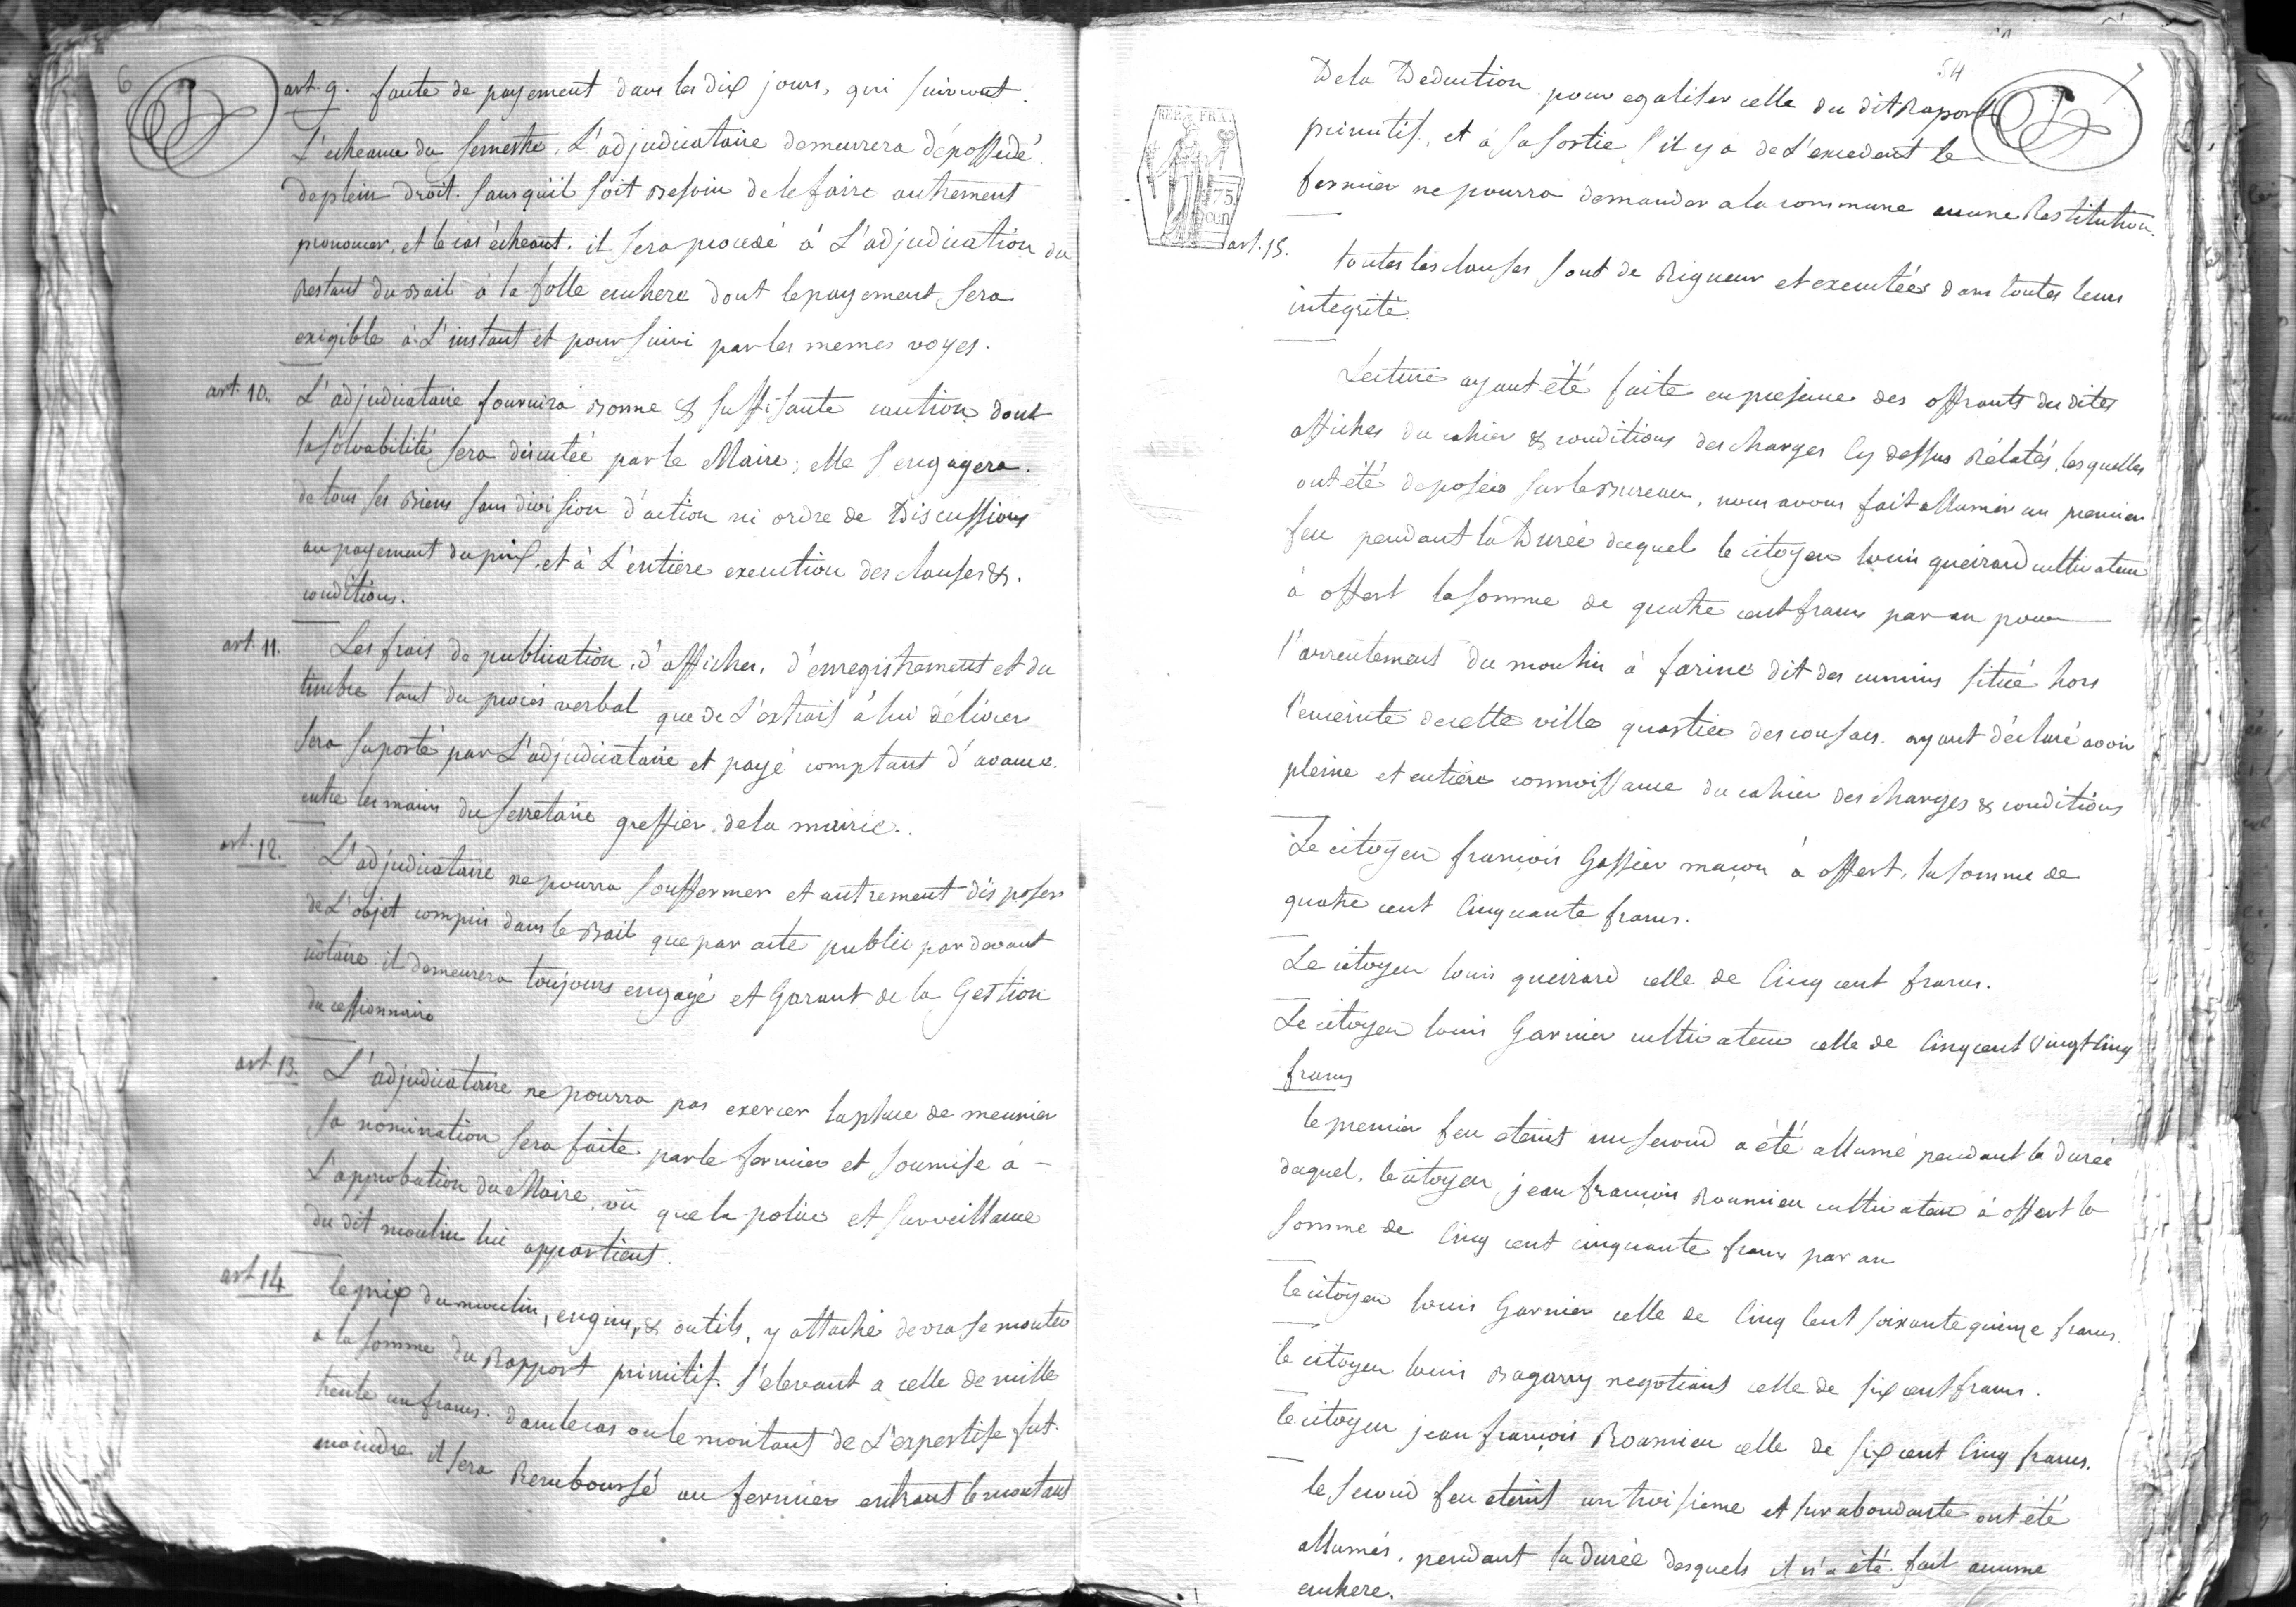 6
art. 9. faute de payement dans les dix jours, qui suivront
L'echeance du semestre, L'adjudicataire demeurera dépossedé
de plein droit. sans qu'il soit Besoin de le faire autrement
prononcer, et le cas écheant. il sera procedé à L'adjudication du
Restant du Bail à la folle enchere dont le payement sera
exigible à L'instant et poursuivi par les memes voyes.
art. 10. L'adjudicataire fournira Bonne & suffisante caution dont
la solvabilité sera discutée par le Maire; elle s'engagera
de tous ses Biens sans division d'action ni ordre de Discussions
au payement du prix, et à L'entiere execution des clauses &
conditions.
art. 11. Les frais de publication, d'affiches, d'enregistrement et du
timbre tant du procés verbal que de L'extrait à lui délivrer
sera suporté par L'adjudicataire et payé comptant d'avance
entre les mains du secretaire greffier de la mairie.
art. 12. L'adjudicataire ne pourra soussfermer et autrement disposer
de L'objet compris dans le Bail que par acte public par devant
notaire il demeurera toujours engagé et Garant de la Gestion
du cessionnaire
art. 13. L'adjudicataire ne pourra pas exercer la place de meunier
sa nomination sera faite par le fermier et soumise à
L'approbation du Maire, vû que la police et surveillance
du dit moulin lui appartient.
art 14 le prix du moulin, engins, & outils, y attaché devra se monter
a la somme du Rapport primitif. s'elevant a celle de mille
trente un francs. dans le cas ou le montant de L'expertise fut
moindre il sera Remboursé au fermier entrant le montant
54
7
REP. FRA.
75
cen
De la Deduction pour egaliser celle du dit Raport
primitif, et à sa sortie s'il y a de L'excedent le
fermier ne pourra demander a la commune aucune Restitution.
art. 15. toutes les clauses sont de Rigueur et executées dans toutes leur
integrité.
Lecture ayant été faite en presence des offrants des dites
affiches du cahier & conditions des charges cy dessus Rélatés, lesquelles
ont été deposées sur le Bureau, nous avons fait allumer un premier
feu pendant la Durée duquel le citoyen louis queirard cultivateur
à offert la somme de quatre cent francs par an pour
l'arrentement du moulin à farine dit des situé hors
l'enceinte de cette ville quartier des ayant déclaré avoir
pleine et entiere connoissance du cahier des charges & conditions
Le citoyen françois Gassier maçon à offert, la somme de
quatre cent Cinquante francs.
Le citoyen louis queirard celle de Cinq cent francs.
Le citoyen louis Garnier cultivateur celle de Cinq cent vingt Cinq
francs
le premier feu eteint un second a été allumé pendant la durée
duquel, le citoyen jean françois Roumieu cultivateur à offert la
somme de Cinq cent cinquante francs par an
le citoyen louis Garnier celle de Cinq Cent soixante quinze francs.
le citoyen louis Bagarry negotiant celle de six cent francs.
le citoyen jean françois Roumieu celle de six cent Cinq francs.
le second feu eteint un troisieme et surabondante ont été
allumés, pendant la Durée desquels il n'a été fait aucune
enchere.